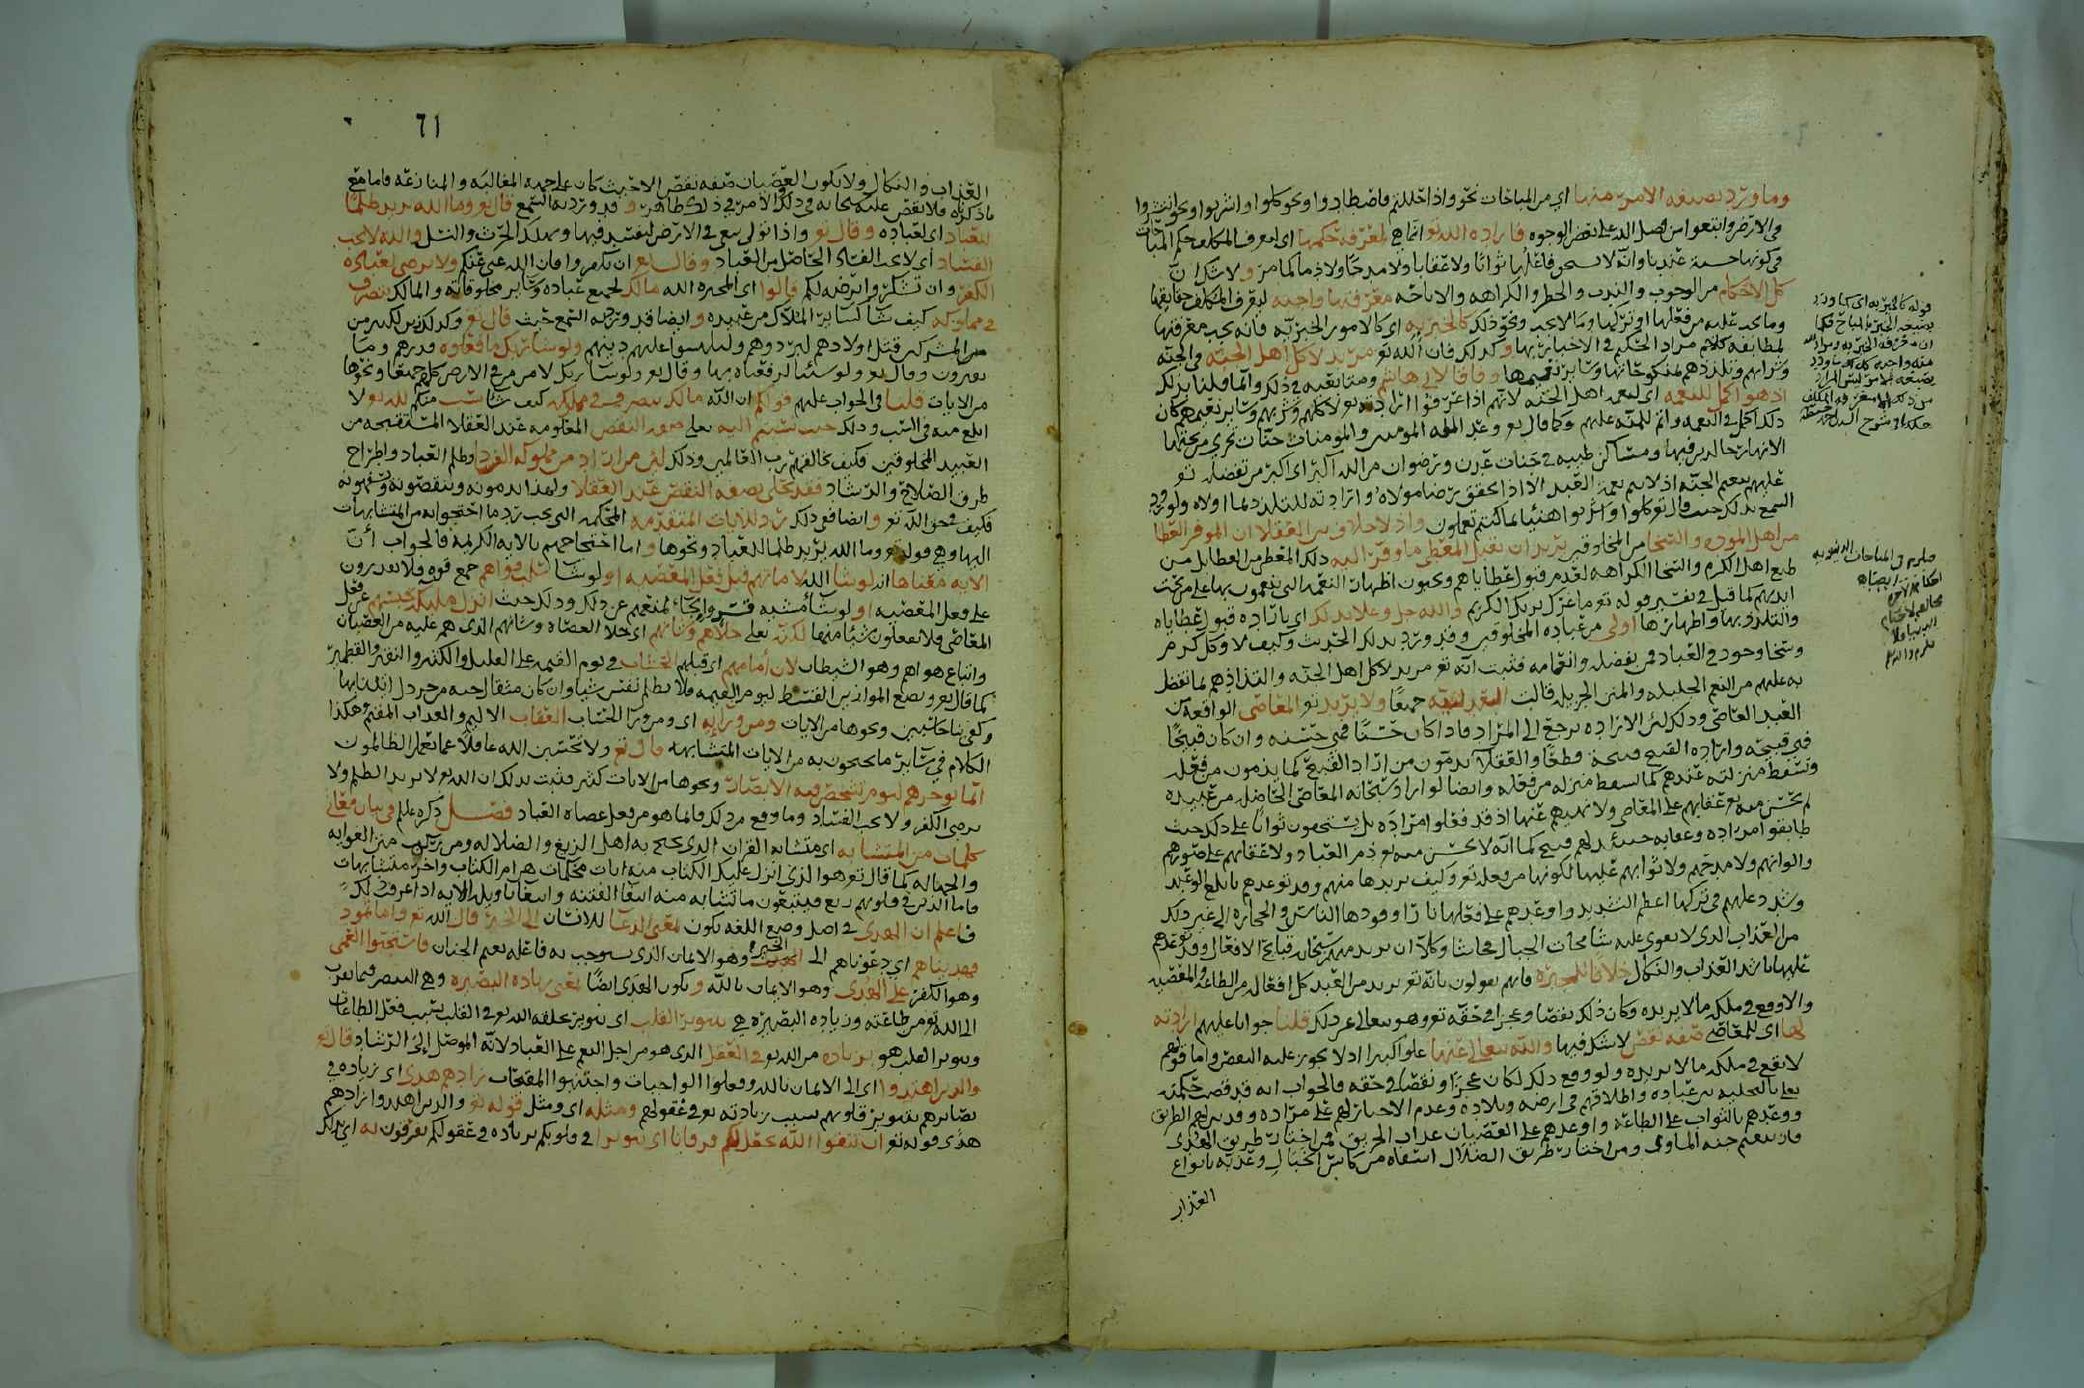 وما ورد بصيغه الامر منها اي من المباحات نحو واذا حللتم فاصطادوا ونحو كلوا واشربوا ونحو انتشروا
في الارض وابتغوا من فضل الله على بعض الوجوه فاراده الله تعو انما هي لمعرفه حكمها اي المكلف حكم المباحات
في كونها حسنة وانه لا يستحق فاعلها ثوابًا ولا عقابا ولا مدحًا ولا ذما كما مر ولا شك ان
كل الاحكام من الوجوب والندب والحظر والكراهه والاباحه معرفتها واجبه ليعرف المكلف حقايقها
وما يجب عليه من فعلها او تركها وما لا يجب ونحو ذلك كالخبريه اي كالامور الخبريه فانه يجب معرفتها
لمطابقه كلام مراد الحكيم في الاخبار بها وكذلك فان الله تعو مريد لاكل اهل الجنه في الجنه
وشرابهم وتلذذهم بمنكوحاتها وساير نعيمها وفاقا لابي هاشم
اذ هو اكمل للنعمه اي لنعمه اهل الجنه لانهم اذا عرفوا ارادته تعو لاكلهم وشربهم وساير نعيمهم كان
ذلك اكمل في النعمه واتم للمنه عليهم وكما قال تعو وعد الله المومنين والمومنات جنات تجري من تحتها
الانهار خالدين فيها ومساكن طيبه في جنات عدن ورضوان من الله اكبر اي اكبر من تفضله تعو
عليهم بنعيم الجنه اذ لا تتم نعمة العبد الا اذا تحقق رضا مولاه وارادته للتلذذ بما اولاه ولورود
السمع بذلك حيث قال تعو كلوا واشربوا هنيئا بما كنتم تعملون واذ لا خلاف بين العقلا ان الموفر العطا
من اهل المروه والسخا من المخلوقين يريد ان يقبل المعطى ما وفر اليه ذلك المعطي من العطا بل من
طبع اهل الكرم والسخا الكراهه لعدم قبول عطاياهم ويحبون اظهار النعمه التي ينعمون بها على من تحت
ايديهم كما قيل في تفسير قوله تعو ما غرك بربك الكريم والله جل وعلا بذلك اي باراده قبول عطاياه
والتلذذ بها واظهارها اولى من عباده المخلوقين وقد ورد بذلك الحديث وكيف لا وكل كرم
وسخا وجود في العباد فمن تفضله وانعامه فثبت انه تعو مريد لاكل اهل الجنه والتذاذهم بما تفضل
به عليهم من النعم الجليله والمنن الجزيله قالت العدليه جميعًا ولا يريد تعو المعاصي الواقعه من
العبد العاصي وذلك لان الاراده ترجع الى المراد فاذا كان حسنًا فهي حسنه وان كان قبيحًا
فهي قبيحه واراده القبيح قبيحة قطعًا والعقلآ يذمون من اراد القبيح كما يذمون من فعله
وتسقط منزلته عندهم كما تسقط منزله من فعله وايضا لو اراد سبحانه المعاصي الحاصله من عبيده
لم يحسن منه تعو عقابهم على المعاصي ولا نهيهم عنها اذ قد فعلوا مراده بل يستحقون ثوابًا على ذلك حيث
طابقوا مراده وعقابه حينئذ لهم قبيح كما انه لا يحسن منه تعو ذم العباد ولا عقابهم على صورهم
والوانهم ولا مدحهم ولا ثوابهم عليها لكونها من فعله تعو وكيف يريدها منهم وقد توعدهم بابلغ الوعيد
وشدد عليهم في تركها اعظم التشديد واوعدهم على فعلها نارًا وقودها الناس والحجاره الى غير ذلك
من العذاب الذي لا تقوى عليه شامخات الجبال فحاشا وكلا ان يريد منهم سبحانه قبايح الافعال وقد توعدهم
عليها باشد العذاب والنكال خلافا للمجبره فانهم يقولون بانه تعو يريد من العبد كل افعاله من الطاعه والمعصيه
والا وقع في ملكه ما لا يريده وكان ذلك نقصا وعجزا في حقه تعو وهو يتعالى عن ذلك قلنا جوابا عليهم ارادته
لها اي للمعاصي صفه نقص لا شك فيها والله يتعالى عنها علوا كبيرا اذ لا يجوز عليه النقص واما قولهم
لا يقع في ملكه ما لا يريده ولو وقع ذلك لكان عجزًا ونقصًا في حقه فالجواب انه قد قضت حكمته
تعالى بالتخليه بين عباده واطلاقهم في ارضه وبلاده وعدم الاجبار لهم على مراده وقد بين لهم الطريق
ووعدهم بالثواب على الطاعة واوعدهم على العصيان عذاب الحريق فمن اختار طريق الهدى
فان ينعم جنه الماوى ومن اختار طريق الضلال اسقاه من كاس الخبال وعذبه بانواع
العذاب
قوله كالخبريه اي كما ورد
بصيغه الخبر
٦١
العذاب والنكال ولا يكون العصيان صفه نقص الا حيث كان على جهه المغالبه والمنازعه فاما مع
ما ذكرناه فلا نقص عليه سبحانه في ذلك والامر في ذلك ظاهر وقد ورد به السمع قال تعو وما الله يريد ظلما
للعباد اي لعباده وقال تعو واذا تولى سعى في الارض ليفسد فيها ويهلك الحرث والنسل والله لا يحب
الفساد اي لا يحب الفساد الحاصل من العباد وقال تعو ان تكفروا فان الله غني عنكم ولا يرضى لعباده
الكفر وان تشكروا يرضه لكم قالوا اي المجبره الله مالك لجميع عباده وساير مخلوقاته والمالك يتصرف
في مملوكه كيف شا كساير الملاك من عبيده وايضا قد ورد به السمع حيث قال تعو وكذلك زين لكثير من
من المشركين قتل اولادهم ليردوهم وليلبسوا عليهم دينهم ولو شا ربك ما فعلوه فذرهم وما
يفترون وقال تعو ولو شئنا لرفعناه بها وقال تعو ولو شا ربك لامن من في الارض كلهم جميعا ونحوها
من الايات قلنا في الجواب عليهم قولكم ان الله مالك يتصرف في مملكه كيف شا سب منكم لله تعو لا
ابلغ منه في السب وذلك حيث نسبتم اليه تعالى صفه النقص المعلومه عند العقلا المستقبحه من
العبيد المخلوقين فكيف بخالقهم رب العالمين وذلك لان من اراد من مملوكه الفساد وظلم العباد واطراح
طرق الصلاح والرشاد فقد تحلى بصفه النقص عند العقلا ولهذا يذمونه وينقصونه ويتهمونه
فكيف في حق الله تعو وايضا فعي ذلك رد للايات المتقدمه المحكمه التي يجب رد ما احتجوا به من المتشابهات
اليها وهي قوله تعو وما الله يريد ظلما للعباد ونحوها واما احتجاجهم بالايه الكريمه فالجواب ان
الايه معناها انه لو شا الله لاماتهم قبل فعل المعصيه او لو شا لسلب قواهم جمع قوه فلا يقدرون
على فعل المعصيه او لو شا مشيه قسر واكراه لمنعهم عن ذلك وذلك حيث انزل ملايكه تحبسهم عن فعل
المعاصي فلا يفعلون شيئا منها لكنه تعالى خلاهم وشانهم اي خلا العصاه وشانهم الذي هم عليه من العصيان
واتباع هواهم وهو الشيطان لان امامهم اي قبلهم الحساب في يوم القيمه على القليل والكثير والنقير والقطمير
كما قال تعو ونضع الموازين القسط ليوم القيمه فلا تظلم نفس شيا وان كان مثقال حبه من خردل اتينا بها
وكفى بنا حاسبين ونحوها من الايات ومن ورايه اي ومن ورا الحساب العقاب الاليم والعذاب المقيم وهكذا
الكلام في ساير ما يحتجون به من الايات المتشابهه قال تعو ولا تحسبن الله غافلا عما يعمل الظالمون
انما يوخرهم ليوم تشخص فيه الابصار ونحوها من الايات كثير فثبت بذلك ان الله تعو لا يريد الظلم ولا
يرضى الكفر ولا يحب الفساد وما وقع من ذلك فانما هو من فعل عصاه العباد فصل ذكره علم في بيان معاني
كلمات من المتشابه اي متشابه القران الذي يحتج به اهل الزيغ والضلاله ومن ركب متن الغوايه
والجهاله كما قال تعو هو الذي انزل عليك الكتاب منه ايات محكمات هن ام الكتاب واخر متشابهات
فاما الذين في قلوبهم زيغ فيتبعون ما تشابه منه ابتغا الفتنه وابتغا تاويله الايه اذا عرفت ذلك
فاعلم ان الهدى في اصل وضع اللغه يكون بمعنى الدعا للانسان الى الخير قال الله تعو واما ثمود
فهديناهم اي دعوناهم الى الخير وهو الايمان الذي يستوجب به فاعله نعيم الجنان فاستحبوا العمى
وهو الكفر على الهدى وهو الايمان بالله ويكون الهدى ايضًا بمعنى زياده البصيره وهي التبصر فيما يقرب
الى الله تعو من طاعته وزياده البصيره هي بتنوير القلب اي بتنوير يخلقه الله تعو في القلب بسبب فعل الطاعات
وتنوير القلب هو بزياده من الله تعو في العقل الذي هو من اجل النعم على العباد لانه الموصل الى الرشاد قال تعو
والذين اهتدوا اي الى الايمان بالله وفعلوا الواجبات واجتنبوا المقبحات زادهم هدى اي زياده في
بصايرهم بتنوير قلوبهم بسبب زيادته تعو في عقولهم ومثله اي ومثل قوله تعو والذين اهتدوا زادهم
هدى قوله تعو ان تتقوا الله يجعل لكم فرقانا اي تنويرا في قلوبكم بزياده في عقولكم تفرقون به اي بذلك